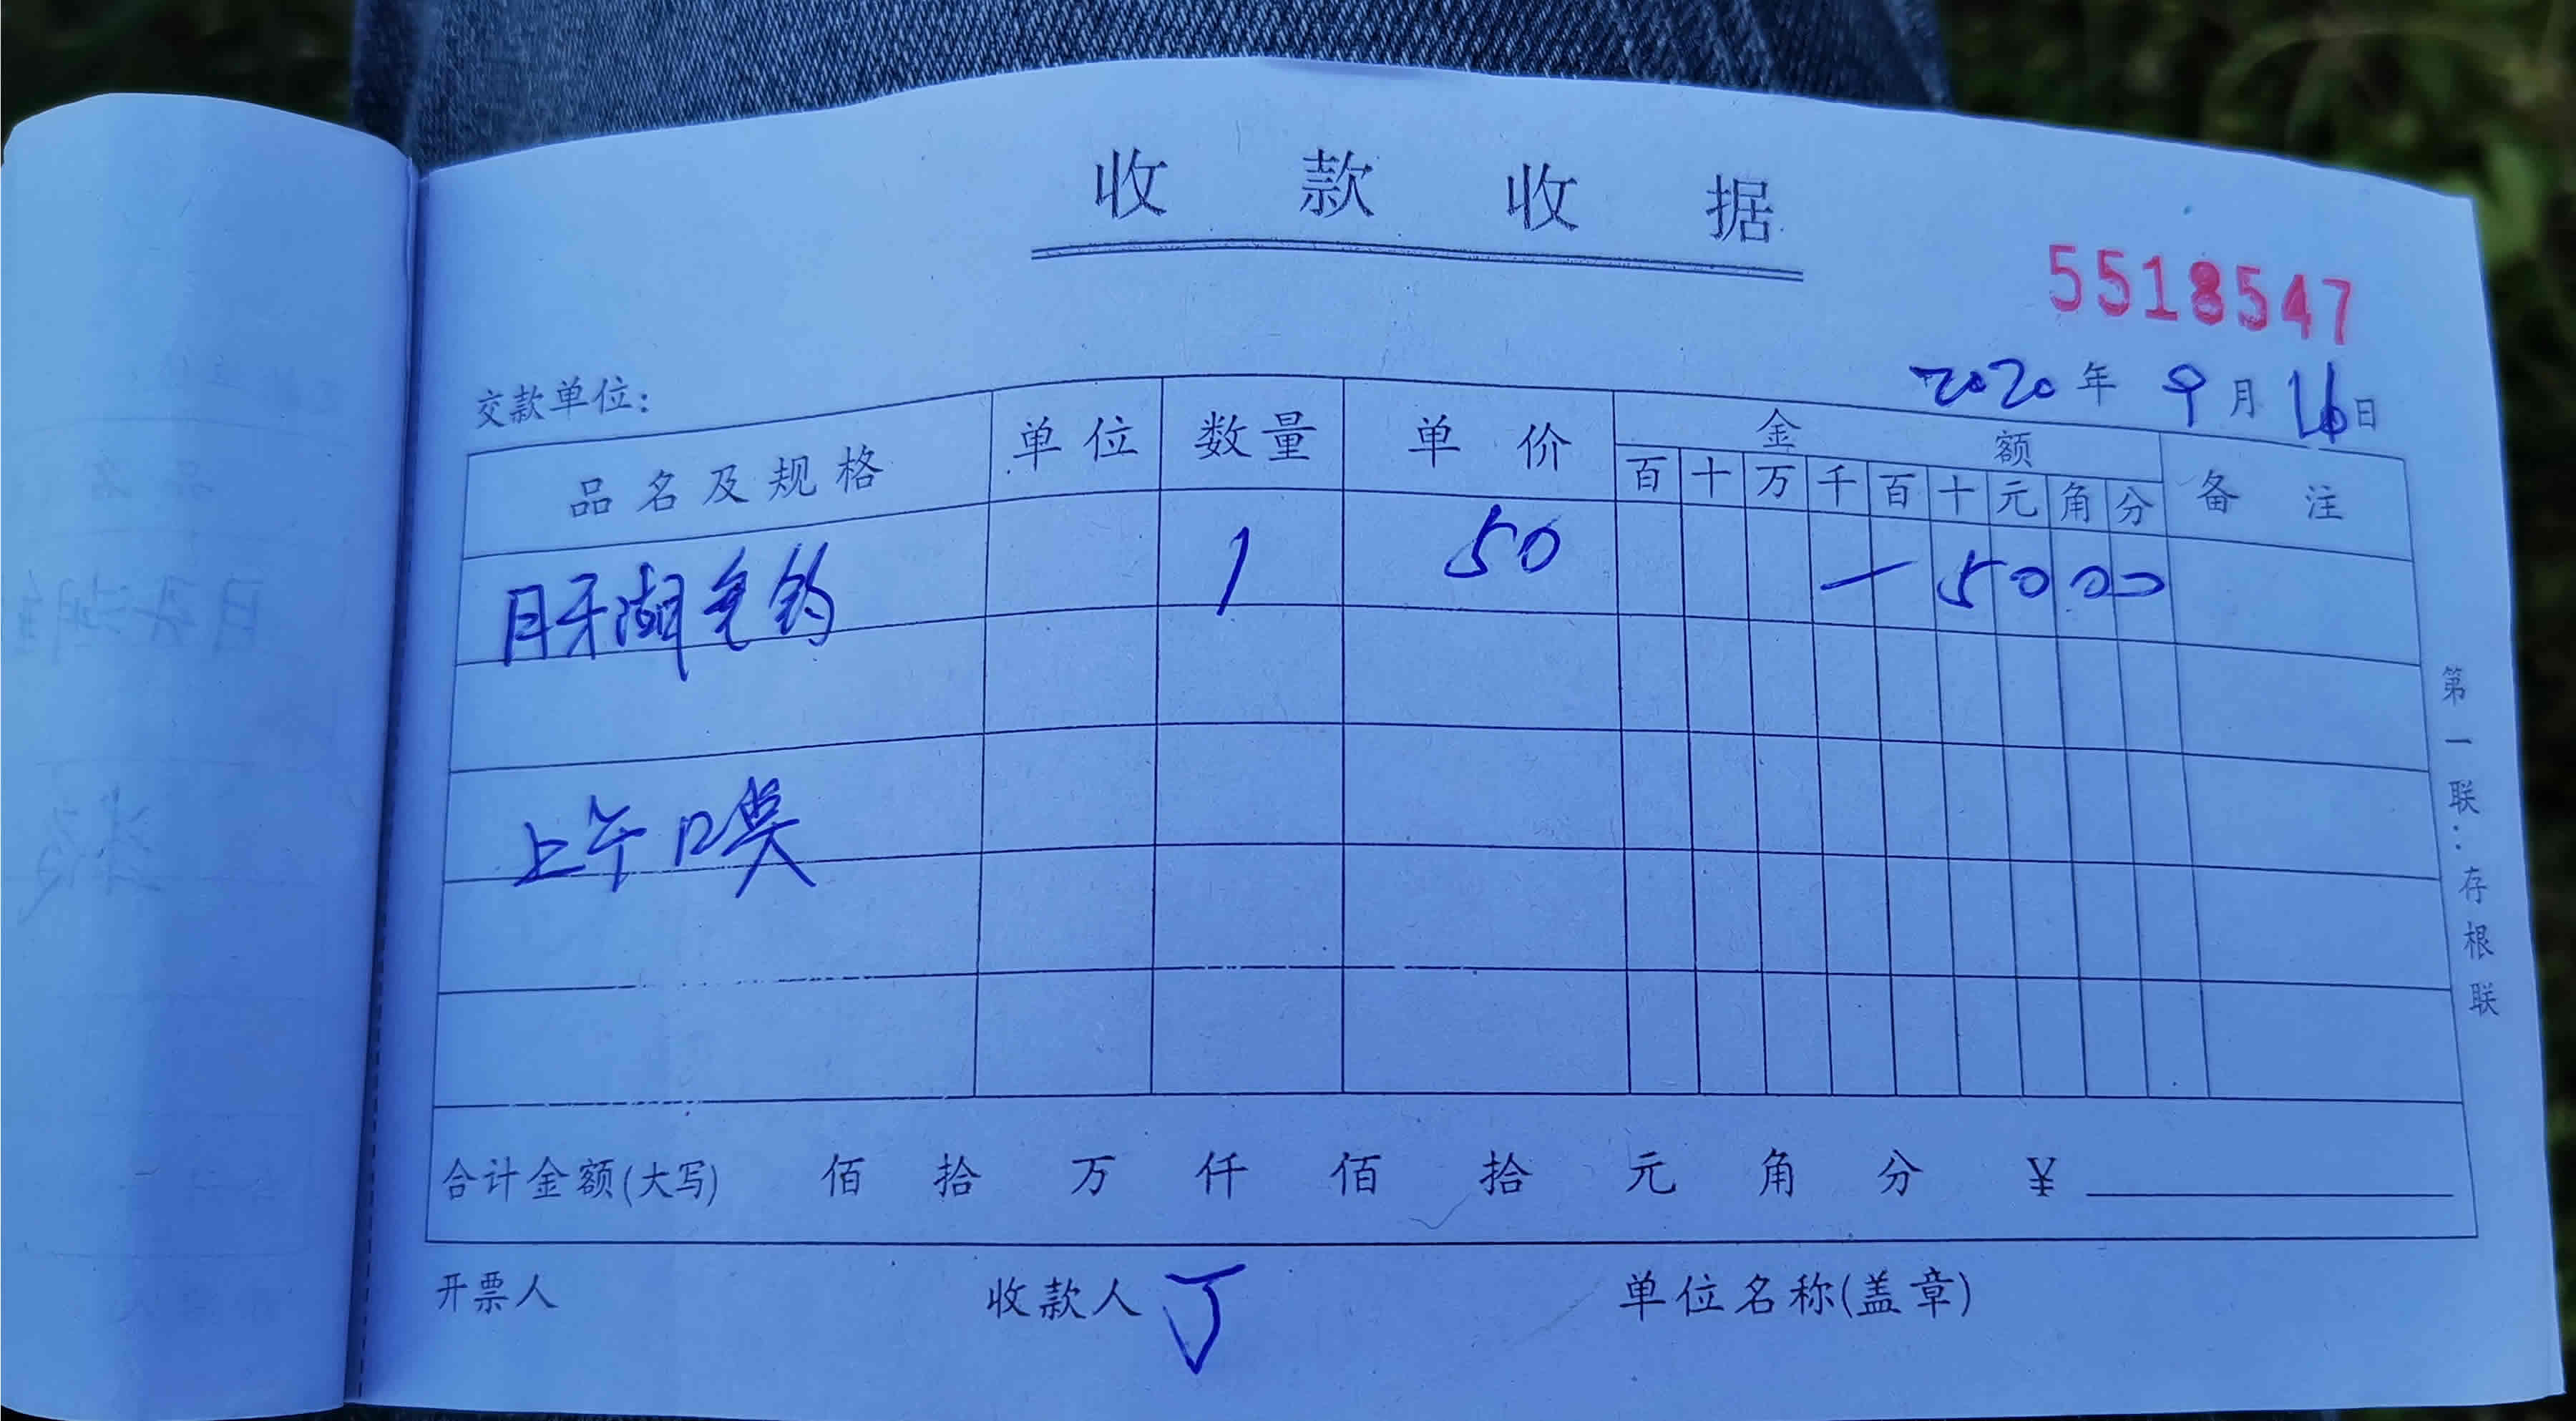 收款收据
5518547
交款单位:
2020年9月16日
品名及规格 单位 数量 单价 金额 备注
百 十 万 千 百 十 元 角 分
月牙湖 钓 1 50 一 5 0 0 0
上午
第一联:存根联
合计金额(大写) 佰 拾 万 仟 佰 拾 元 角 分 ¥
开票人 收款人 丁 单位名称(盖章)